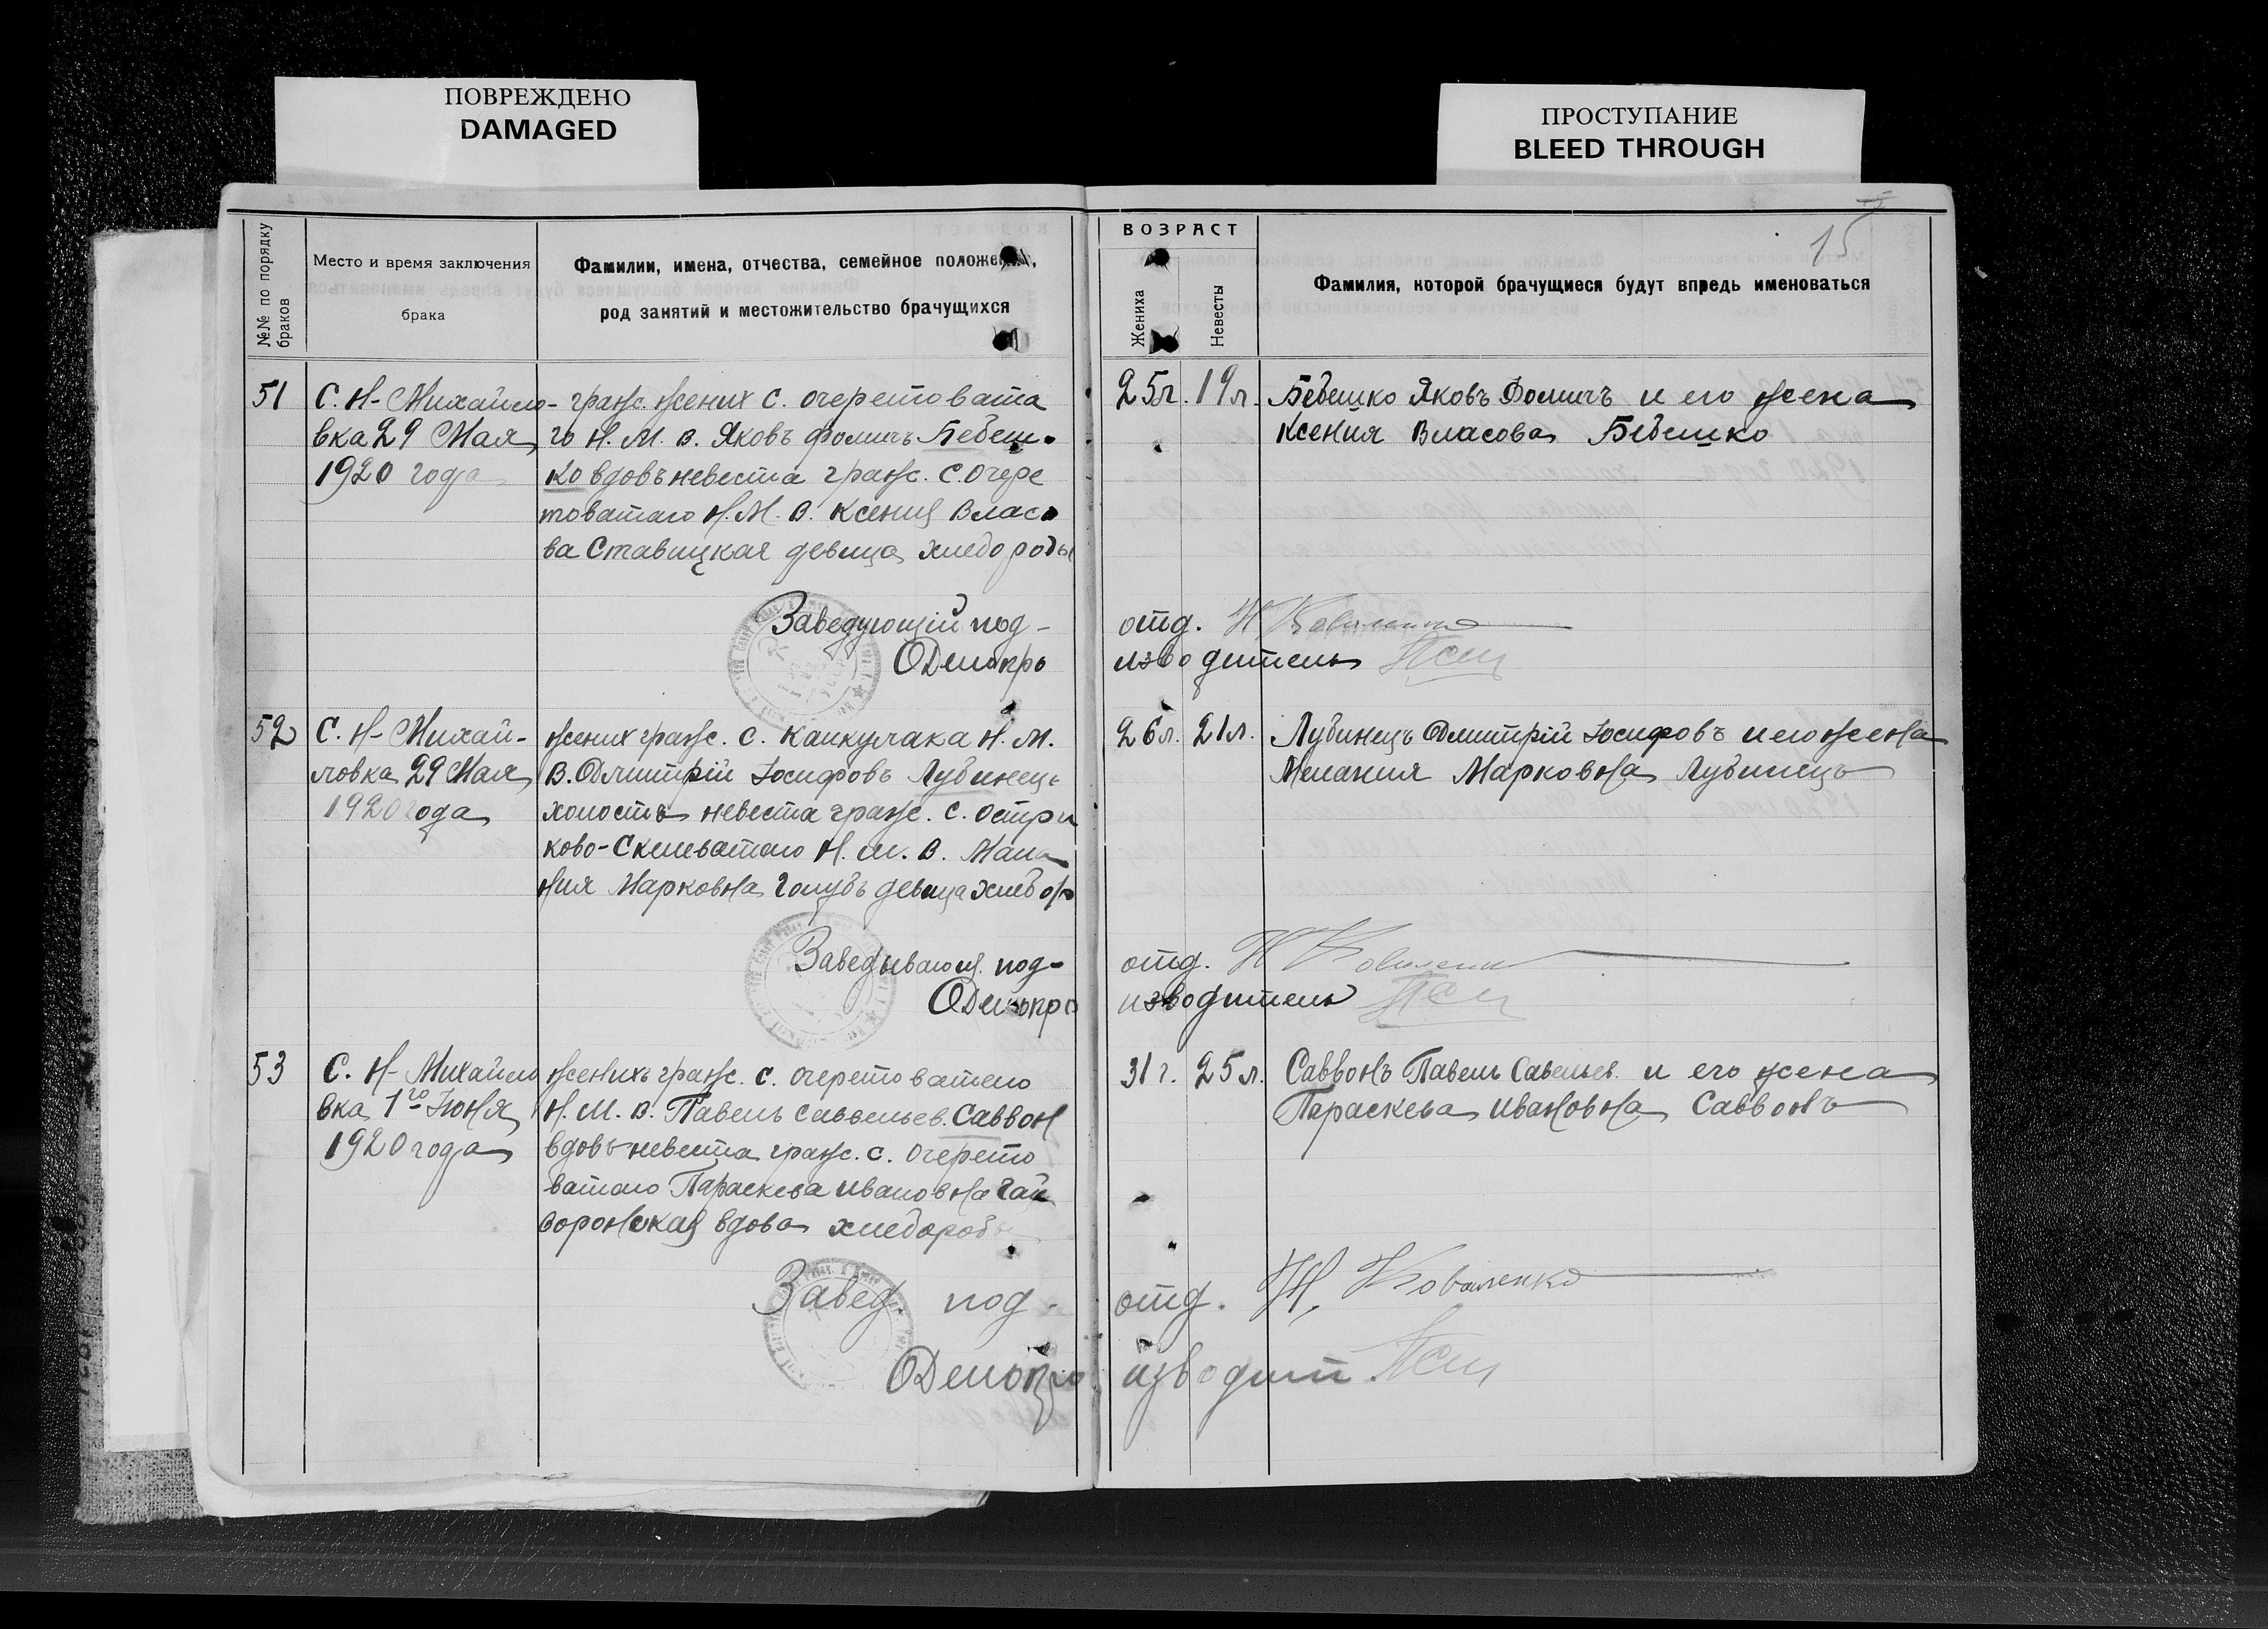 ПОВРЕЖДЕНО
DAMAGED
ПРОСТУПАНИЕ
BLEED THROUGH
15
№№ по порядку браков
Место и время заключения
брака
Фамилии, имена, отчества, семейное положе
род занятий и местожительство брачущихся
ВОЗРАСТ
Жениха
Невесты
Фамилия, которой брачущиеся будут впредь именоваться
51
С. Н-Михайло-
вка 29 Мая
1920 года
гражс. жених с. очеретовата
го Н. М. В. Яковъ Фомичъ Бебеш-
ко вдовъ невеста гражс. с. Очере
товатаго Н. М. В. Ксения Власо
ва Ставицкая девица хлебороды
25л. 19л.
Бебешко Яковъ Фомичъ и его жена
Ксения Власова Бебешко
Заведующій под-
отд. Н Коваленко
Делопро
изводитель
52
С. Н-Михай-
ловка 29 Мая
1920 года
жених гражс. с. Канкулака Н. М.
В. Дмитрій Іосифовъ Лубинець
холостъ невеста гражс. с. Остри
ково-Скелеватаго Н. М. В. Мела
ния Марковна Голубъ девица хлебор
26л. 21л.
Лубинецъ Дмитрій Іосифовъ и его жена
Мелания Марковна Лубинецъ
Заведывающ. под-
отд. Н Коваленко
Делопро
изводитель
53
С. Н-Михайло
вка 1го Іюня
1920 года
женихъ гражс. с. очеретоватого
Н. М. В. Павелъ Савельев. Саввон
вдовъ невеста гражс. с. Очерето
ватаго Параскева Ивановна Гай
воронская вдова хлебороды
31г. 25л.
Саввонъ Павелъ Савельев. и его жена
Параскева Ивановна Саввонъ
Завед. под-
отд. Н. Коваленко
Делопро
изводит.